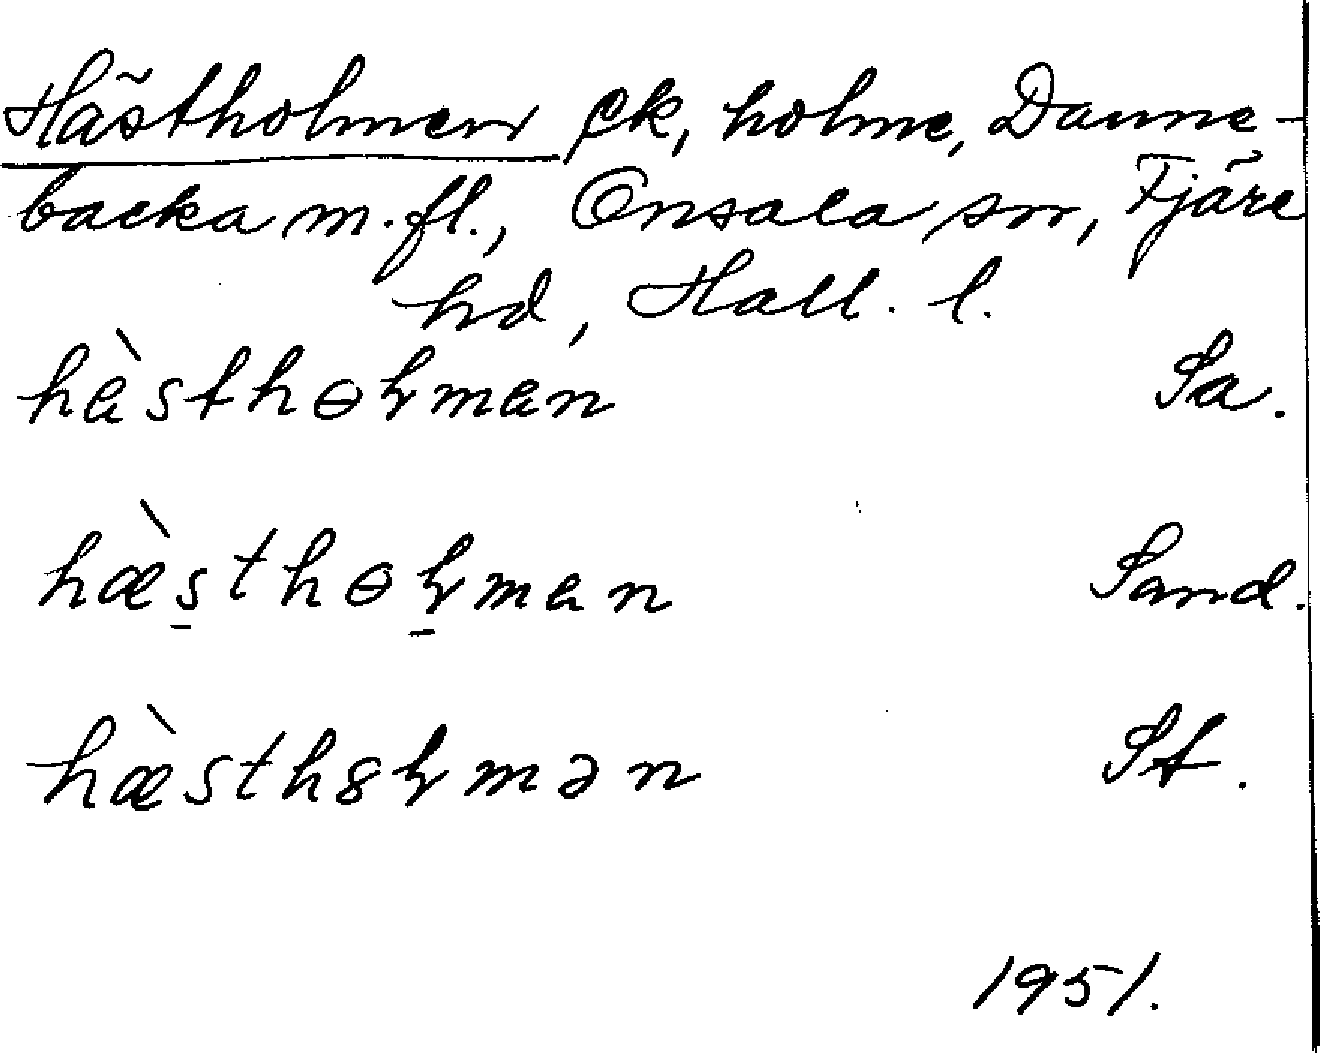 Hästholmen Ek, holme, Danne-
backa m.fl., Onsala sn, Fjäre
hd, Hall. l.
hæ̀sthɵɽmɐn Sa.
hæ̀s̠thɵɽ̠mɐn Sand.
hæ̀sth8ɽmən St.
1951.